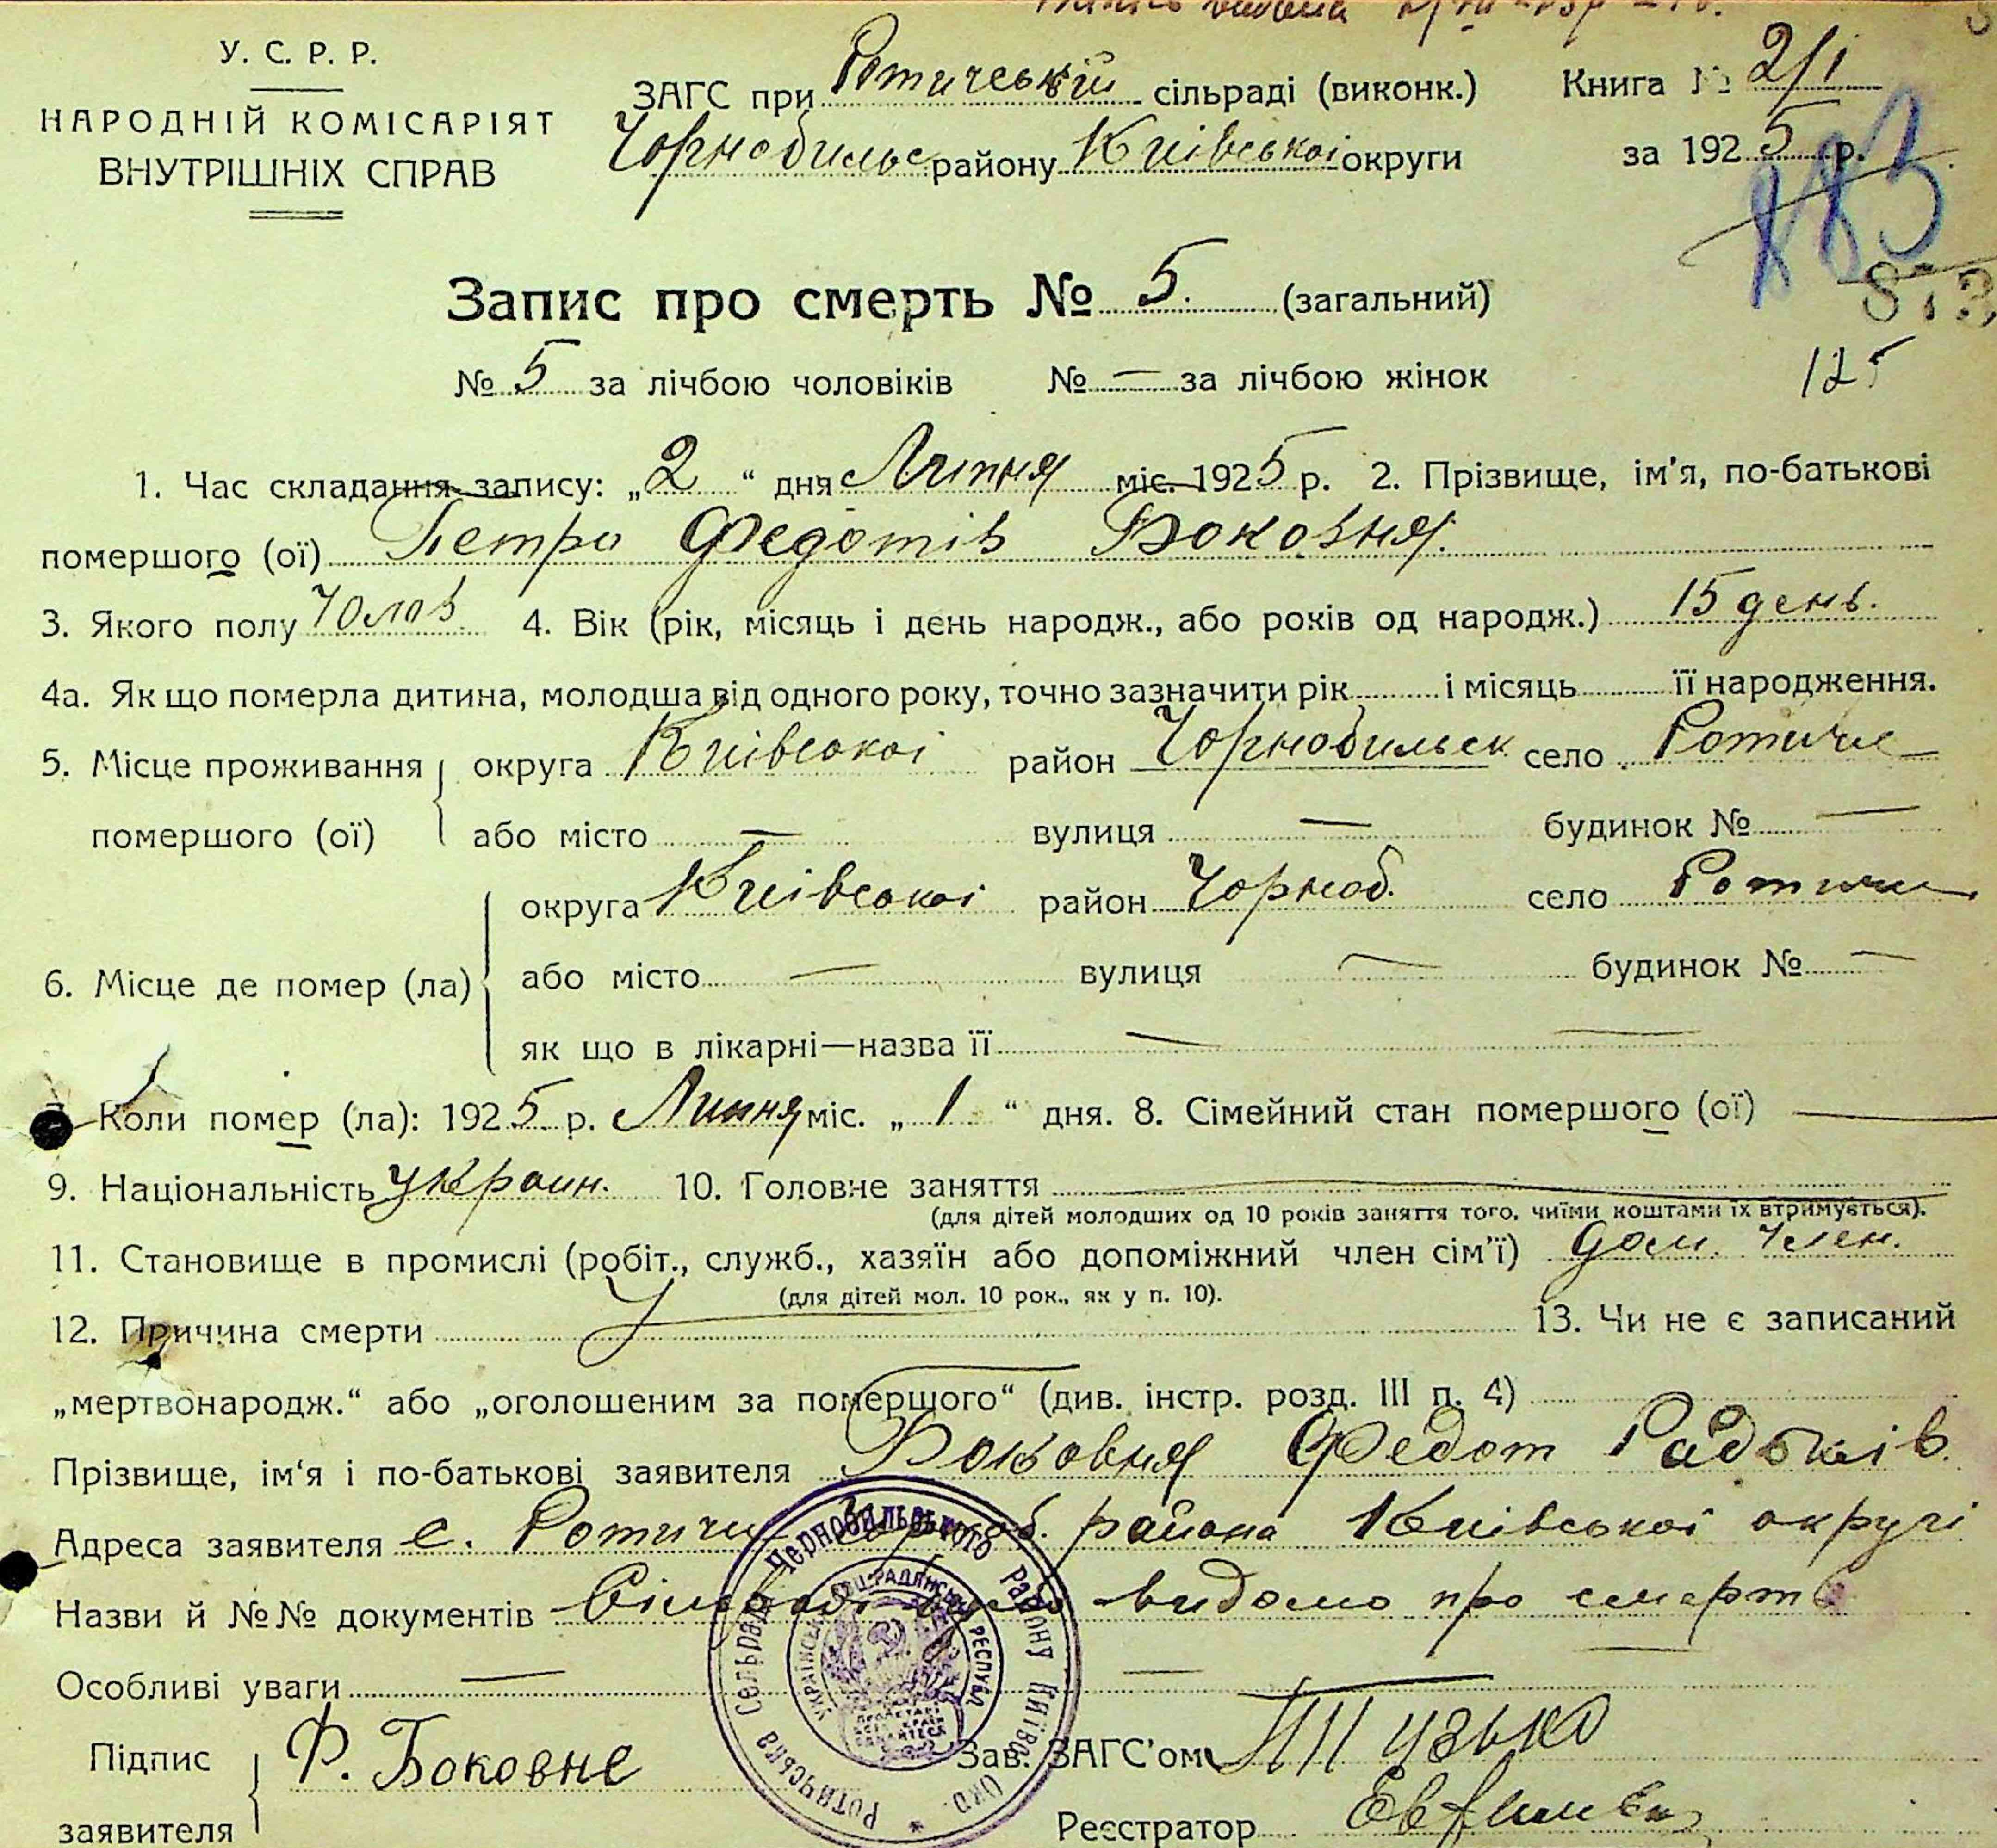 У. С. Р. Р.
НАРОДНІЙ КОМІСАРІЯТ
ВНУТРІШНІХ СПРАВ
ЗАГС при Ротичській сільраді (виконк.) Книга № 2/1
Чорнобильс району Київської округи за 1925 р.
Запис про смерть № 5. (загальний)
№ 5 за лічбою чоловіків № — за лічбою жінок 125
1. Час складання запису: „2“ дня Липня міс. 1925 р. 2. Прізвище, ім'я, по-батькові
помершого (ої) Петро Федотів Боковня.
3. Якого полу Чолов. 4. Вік (рік, місяць і день народж., або років од народж.) 15 день.
4а. Як що померла дитина, молодша від одного року, точно зазначити рік і місяць її народження.
5. Місце проживання округа Київської район Чорнобильск село Ротичи
помершого (ої) або місто — вулиця — будинок № —
округа Київської район Чорноб. село Ротичи
6. Місце де помер (ла) або місто — вулиця — будинок № —
як що в лікарні—назва її — —
7. Коли помер (ла): 1925 р. Липня міс. „1“ дня. 8. Сімейний стан помершого (ої) —
9. Національність Украин. 10. Головне заняття —
(для дітей молодших од 10 років заняття того, чиїми коштами їх втримується).
11. Становище в промислі (робіт., служб., хазяїн або допоміжний член сім'ї) дом. член.
(для дітей мол. 10 рок., як у п. 10).
12. Причина смерти 13. Чи не є записаний
„мертвонародж.“ або „оголошеним за помершого“ (див. інстр. розд. III п. 4)
Прізвище, ім'я і по-батькові заявителя Боковня Федот
Адреса заявителя с. Ротичи Чорноб. района Київської округи
Назви й №№ документів видомо про смерть
Особливі уваги — —
Підпис заявителя Ф. Боковне
Зав. ЗАГС'ом
Реєстратор
Ротичська Сельрада Чернобильського Району Київськ. Окр.